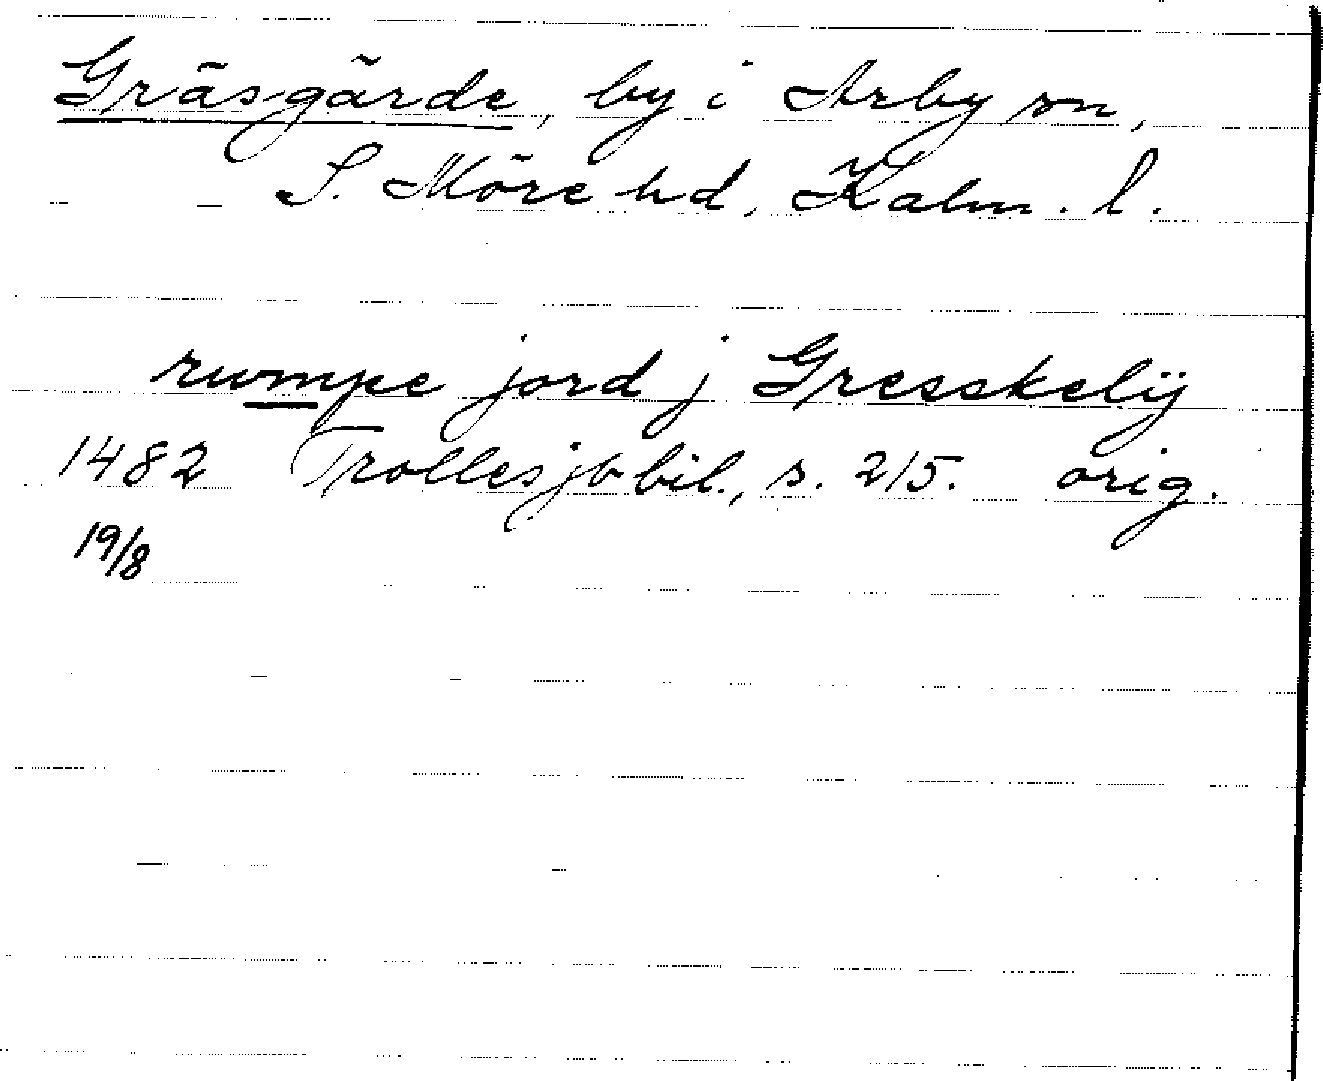 Gräsgärde, by i Arby sn,
S. Möre hd, Kalm. l.
rumpe jord j Gresskelÿ
1482 Trollesjbbil., s. 215. orig.
19/8